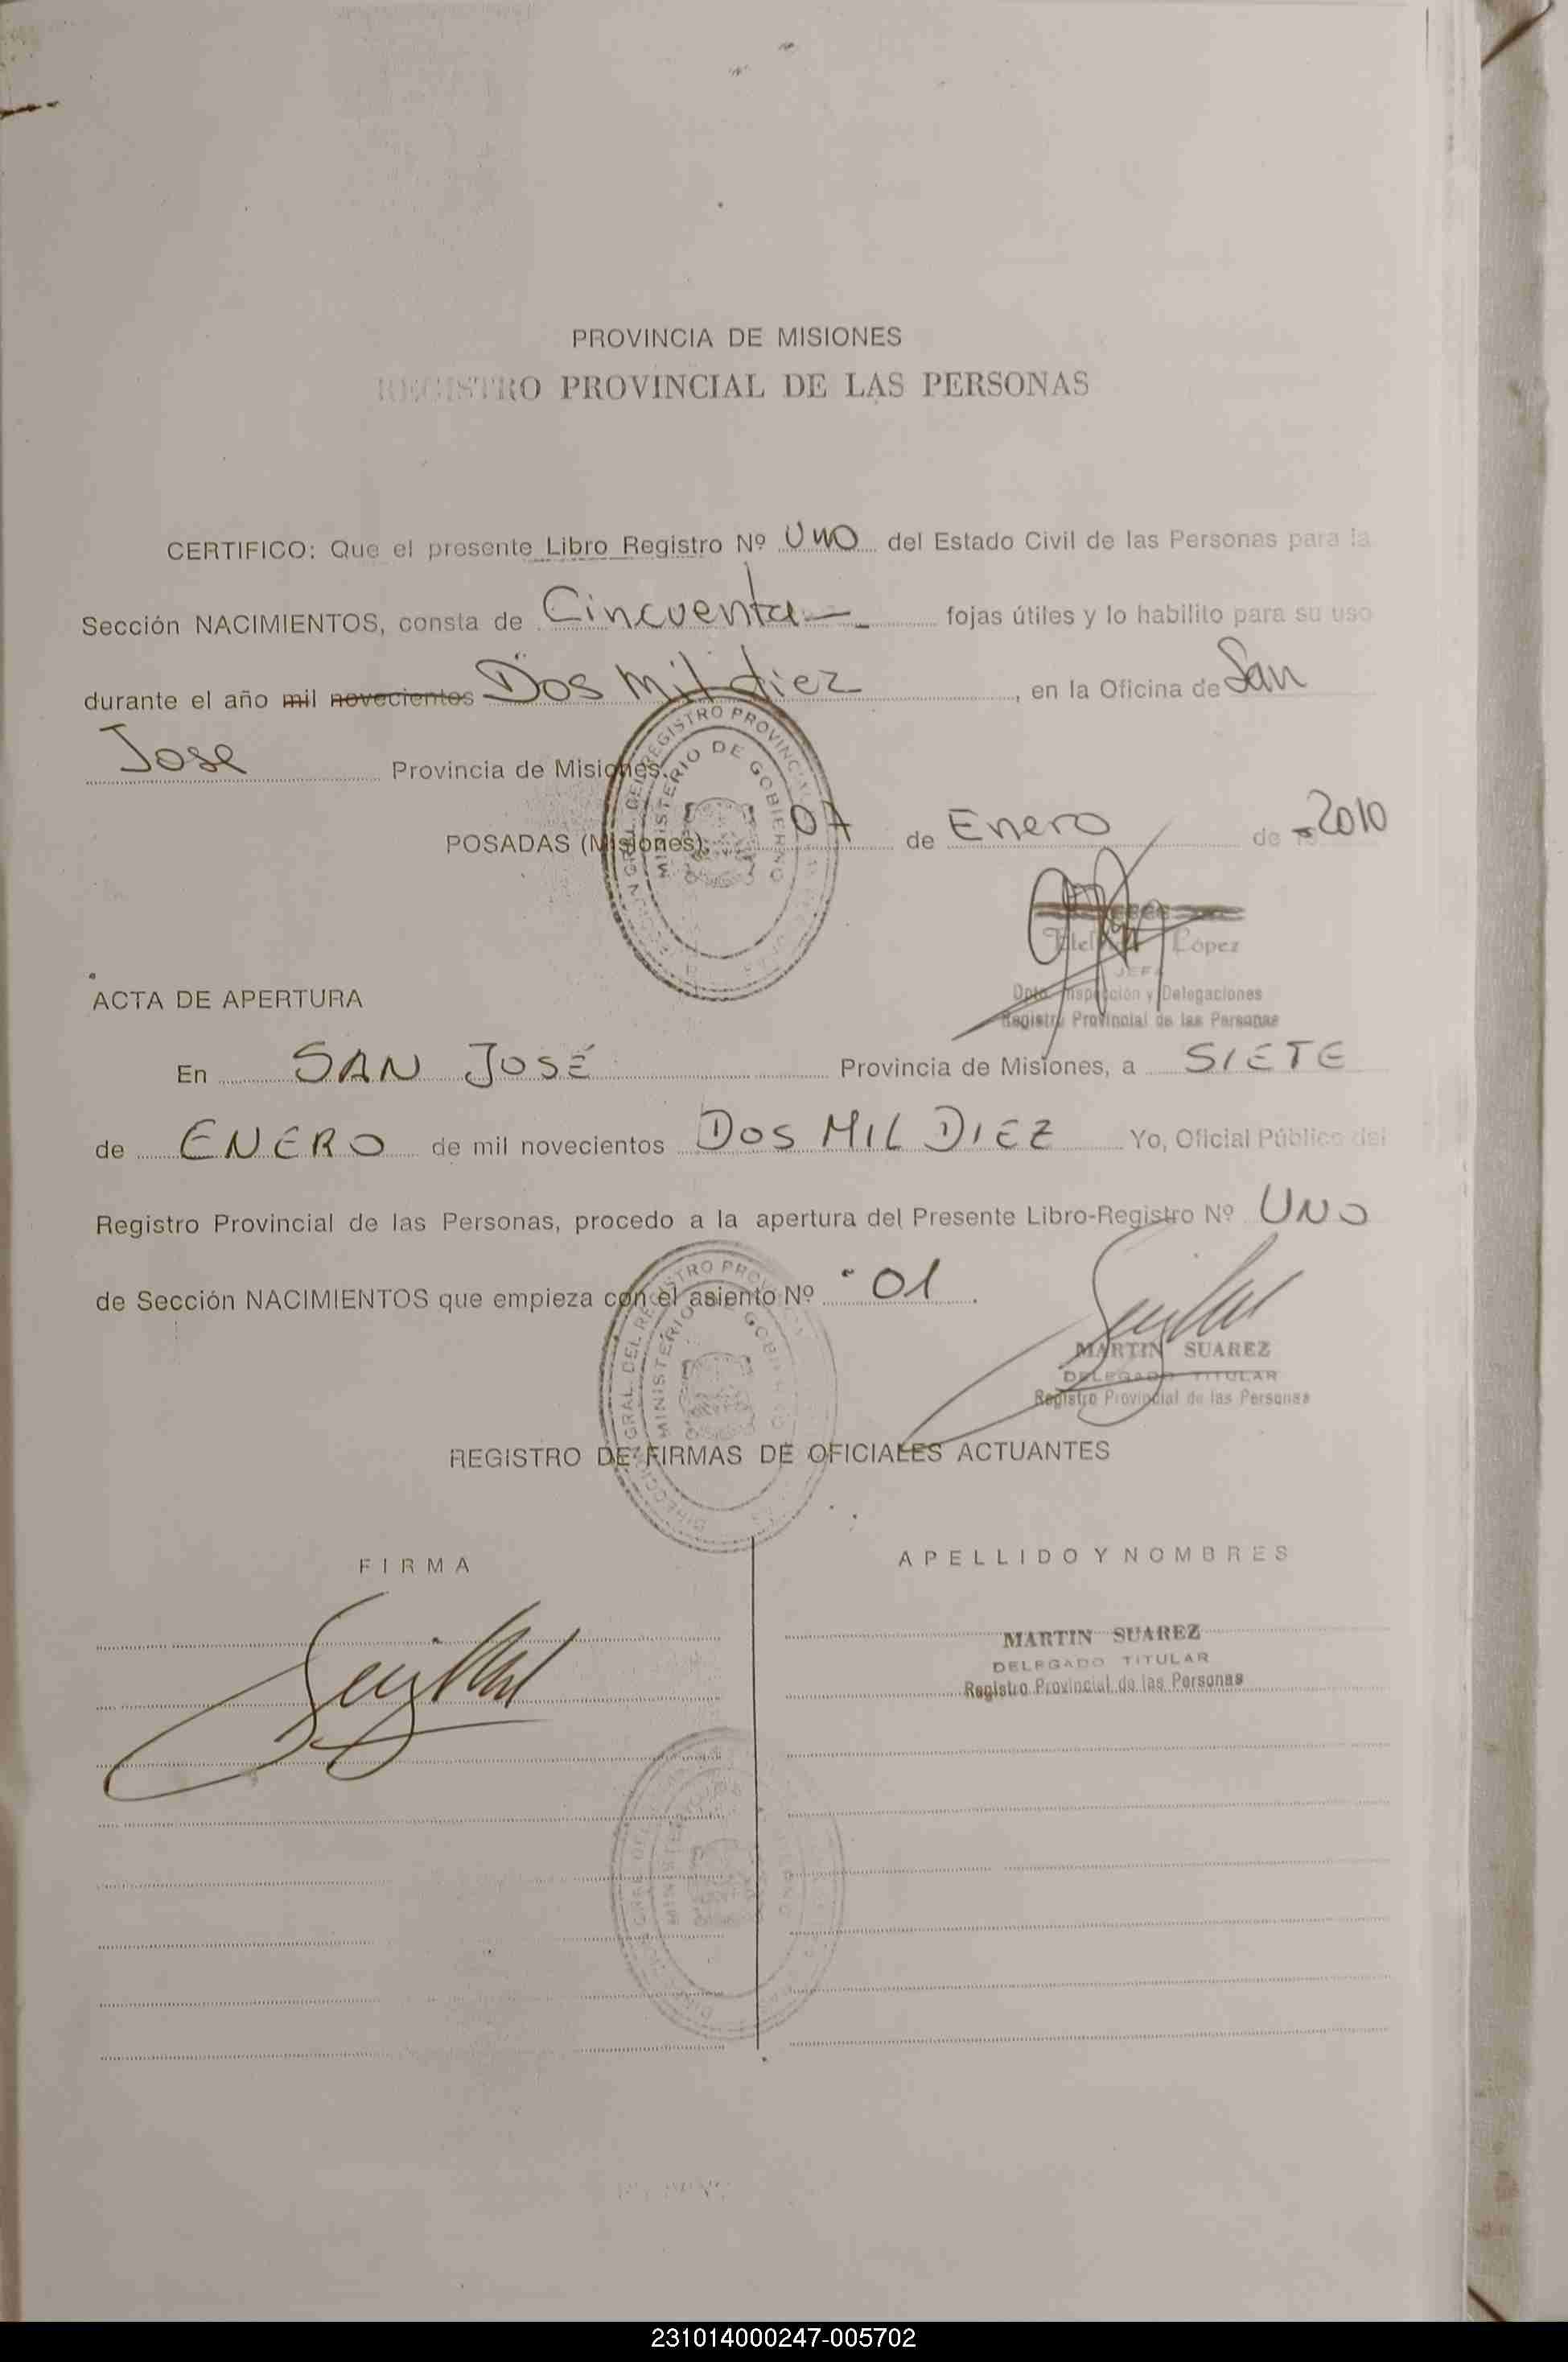 PROVINCIA DE MISIONES
REGISTRO PROVINCIAL DE LAS PERSONAS
CERTIFICO: Que el presente Libro Registro Nº UNO del Estado Civil de las Personas para la
Sección NACIMIENTOS, consta de Cincuenta fojas útiles y lo habilito para su uso
durante el año mil novecientos Dos Mil diez, en la Oficina de San
Jose Provincia de Misiones.
POSADAS (Misiones), 07 de Enero de 2010
López
JEFA
Dpto. Inspección y Delegaciones
Registro Provincial de las Personas
ACTA DE APERTURA
En SAN JOSÉ Provincia de Misiones, a SIETE
de ENERO de mil novecientos DOS MIL DIEZ Yo, Oficial Público del
Registro Provincial de las Personas, procedo a la apertura del Presente Libro-Registro Nº UNO
de Sección NACIMIENTOS que empieza con el asiento Nº 01.
MARTIN SUAREZ
DELEGADO TITULAR
Registro Provincial de las Personas
REGISTRO DE FIRMAS DE OFICIALES ACTUANTES
FIRMA APELLIDO Y NOMBRES
MARTIN SUAREZ
DELEGADO TITULAR
Registro Provincial de las Personas
231014000247-005702